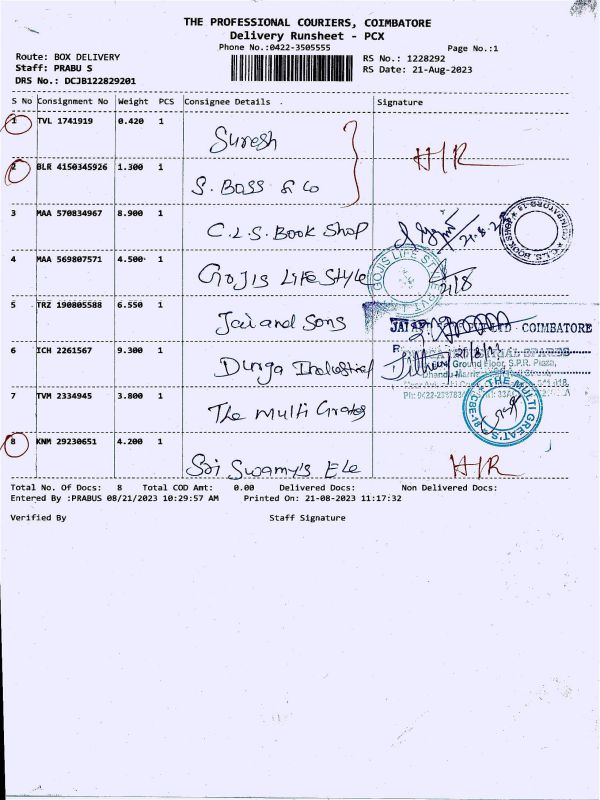 THE PROFESSIONAL COURIERS, COIMBATORE
Delivery Runsheet - PCX
Phone No.:0422-3505555 Page No.:1
Route: BOX DELIVERY RS No.: 1228292
Staff: PRABU S RS Date: 21-Aug-2023
DRS No.: DCJB122829201
S No Consignment No Weight PCS Consignee Details . Signature
1 TVL 1741919 0.420 1 Suresh H/R
2 BLR 4150345926 1.300 1 S. BOSS & Co
3 MAA 570834967 8.900 1 C.L.S. Book Shop 21.8.2
4 MAA 569807571 4.500 1 GOJIS LIFE STYLE 21/8
GOJIS LIFE ST
5 TRZ 190805588 6.550 1 Jai and Sons
JAI COIMBATORE
6 ICH 2261567 9.300 1 Durga Industries 21/8/23
Ground Floor, S.P.R. Plaza,
7 TVM 2334945 3.800 1 The Multi Grates
THE MULTI GREAT'S
8 KNM 29230651 4.200 1 Sri Swamy's Ele H/R
Total No. Of Docs: 8 Total COD Amt: 0.00 Delivered Docs: Non Delivered Docs:
Entered By :PRABUS 08/21/2023 10:29:57 AM Printed On: 21-08-2023 11:17:32
Verified By Staff Signature